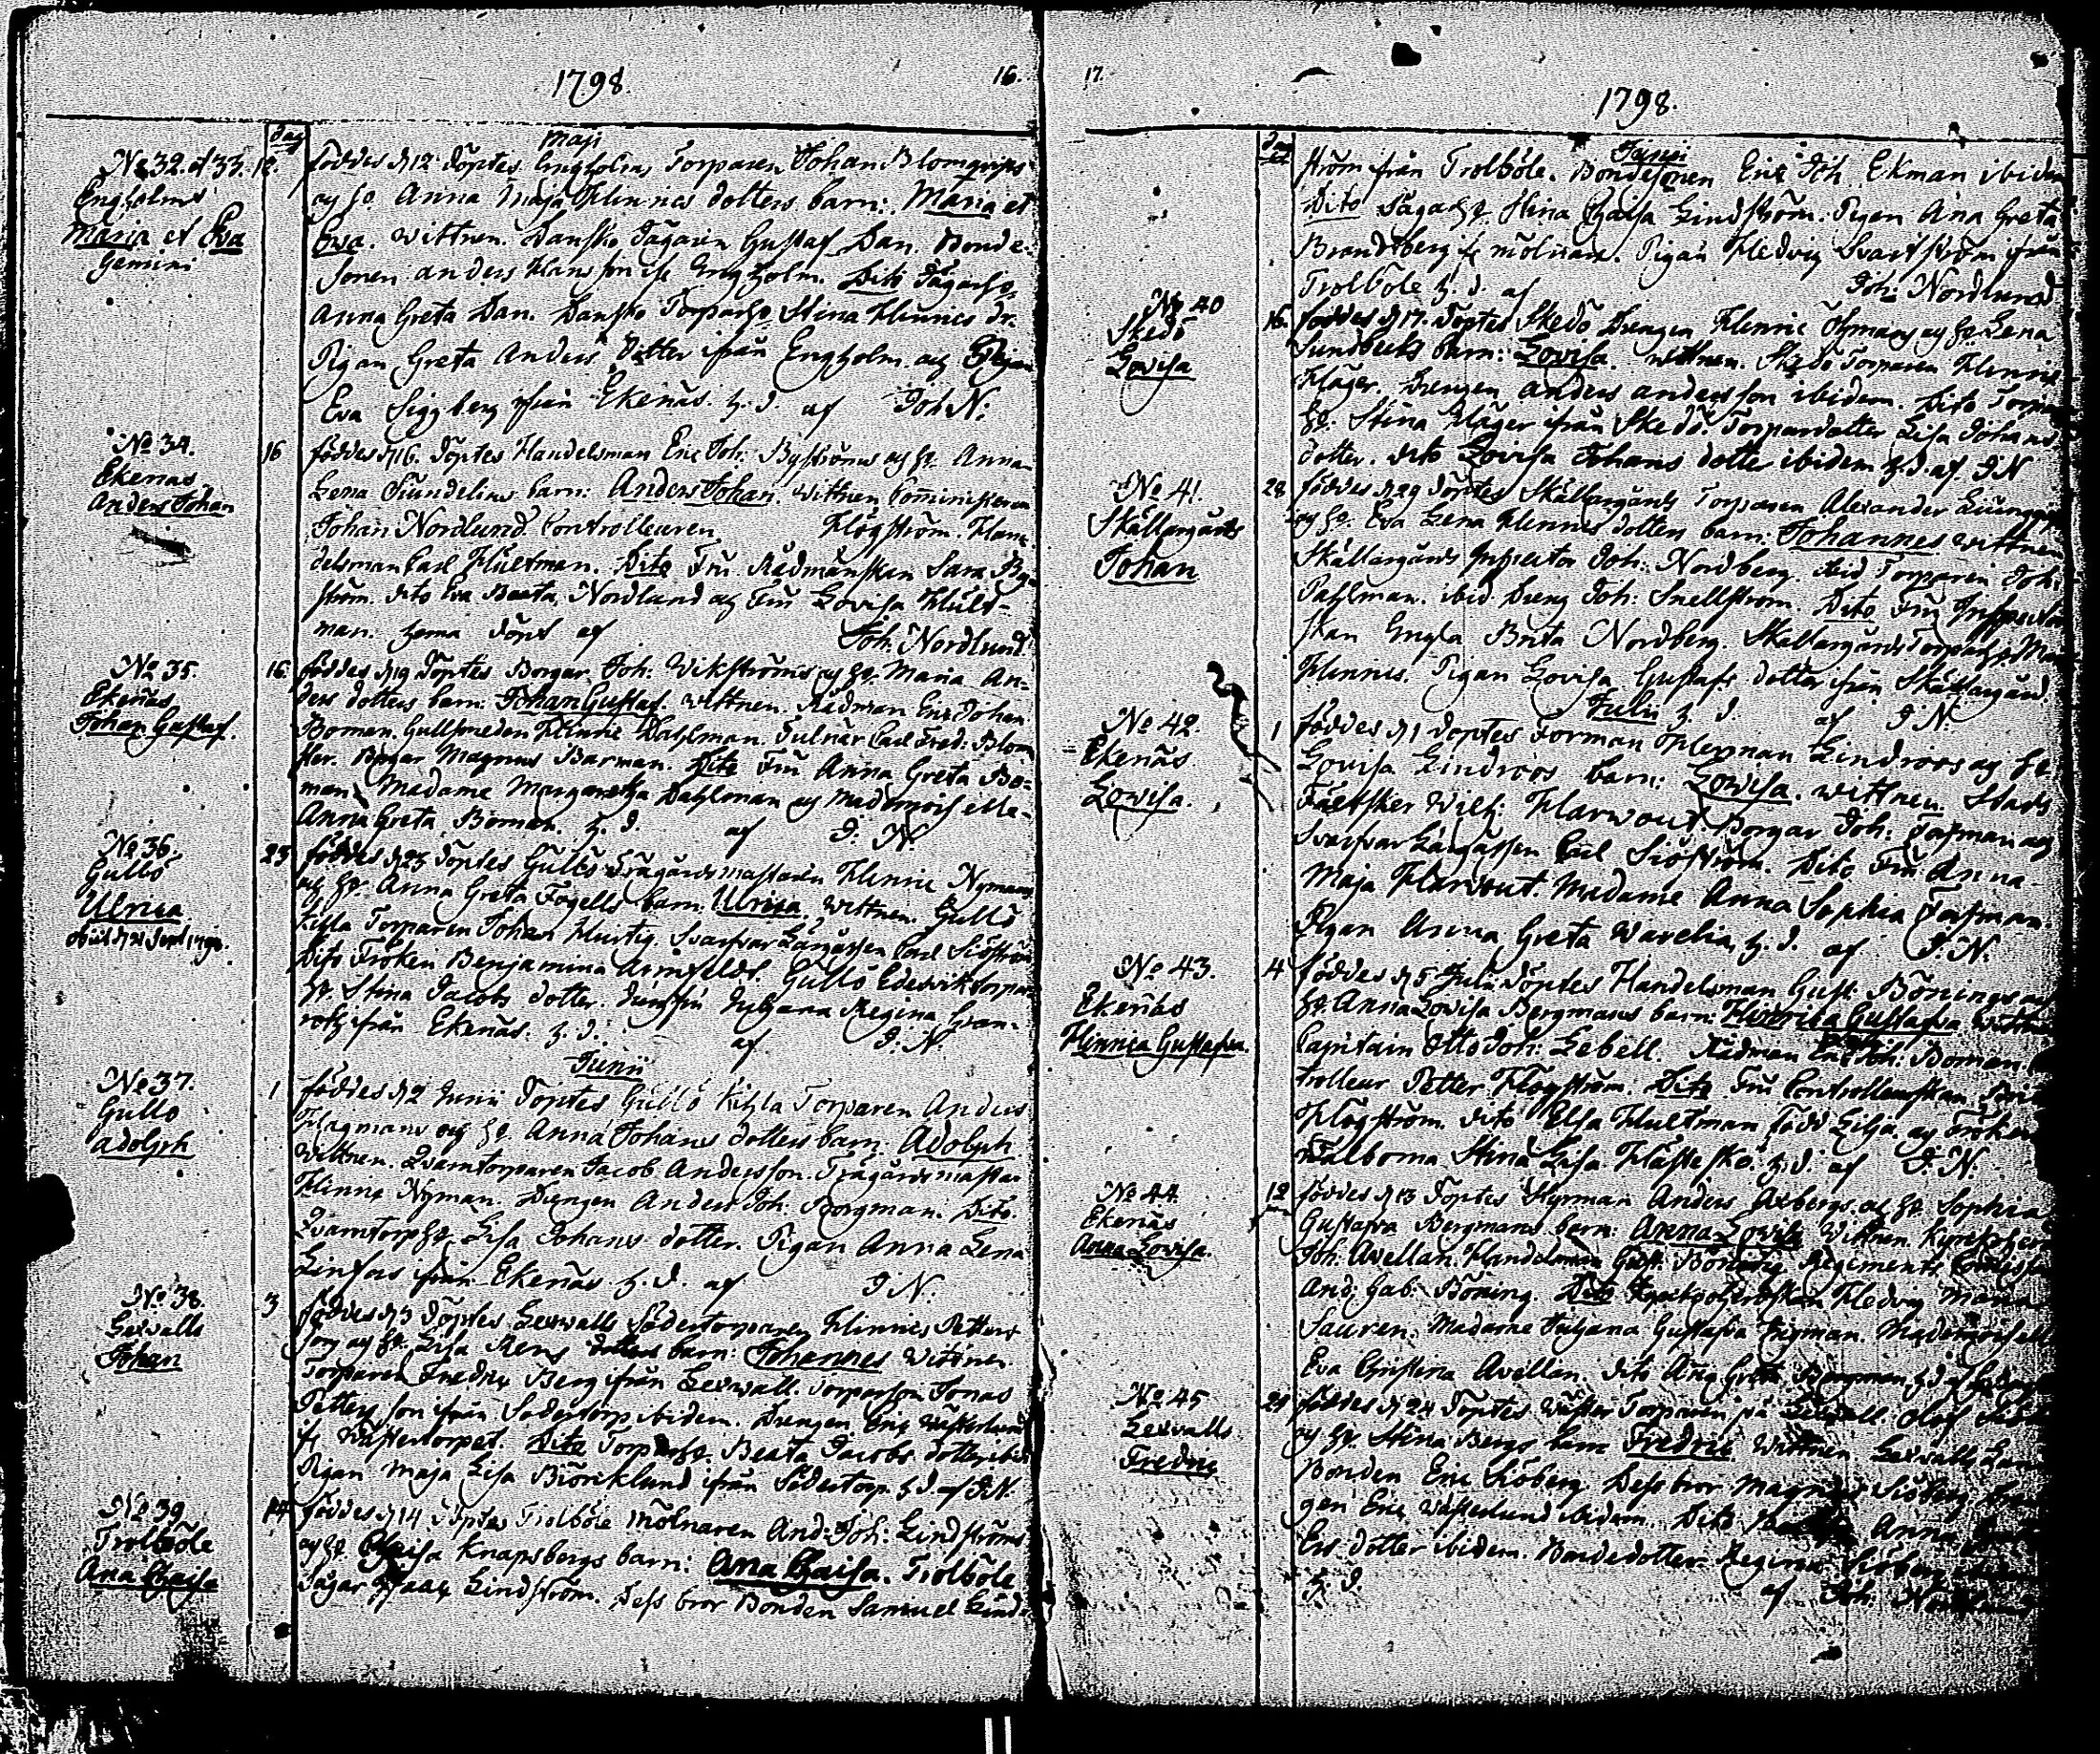 1798.
16.
Dag
Maji
No 32 et 33.
Engholms
Maria et Eva
Gemini
12.
föddes d 12 döptes Engholms Torparen Johan Blomqvists
og H. Anna Maja Hinrics dotters barn: Maria et
Eva. wittnen. Dansko Jägaren Gustaf Dan. Bonde-
sonen anders Hansson if. Engholm. Dito Jägarh.
Anna Greta Dan. Dansko Torparh. Stina Hinrics dr.
Pigan Greta Anders Dotter ifrån Engholm og Pigan
Eva Siggberg ifrån Ekenäs. h. d. af Joh N:
No 34.
Ekenäs
Anders Johan
16
föddes d 16. döptes Handelsman Eric Joh: Byströms og H. Anna
Lena Sundelius barn: Anders Johan. wittnen Comministeren
Johan Nordlund. Controlleuren Högström. Han-
delsman Carl Hultman. Dito Fru Rådmanskan Sara By-
ström. dito Eva Beata Nordlund og Fru Lovisa Hult-
man. hema döpt af Joh: Nordlund
No 35.
Ekenäs
Johan Gustaf.
16
föddes d 19 döptes Borgar Joh: Wikströms og H. Maria An-
ders dotters barn: Johan Gustaf. wittnen. Rådman Eric Johan
Boman. Gullsmeden Hinric Dahlman. Tulnär Carl Fred: Blom
ster. Borgar Magnus Barman. Dito Fru Anna Greta Bo-
man. Madame Margaretha Dahlman og Mademoiselle
Anna Greta Boman. h. d. af J. N.
No 36.
Gullö
Ulrica
obiit d 21 Sept 1798.
23
föddes d 25 döptes Gullö Trägårdsmästaren Hinric Nymans
og H. Anna Greta Fogells barn: Ulrica. wittnen. Gullö
Kihla Torparen Johan Hurtig. Svarfvar Lärgåssen Carl Siöström
Dito Fröken Benjamina Armfeldt. Gullö Edesvik torpar
H. Stina Jacobs dotter. Jumfru Julyana Regina Gran-
roth ifrån Ekenäs. h. d. af J. N.
Junii
No 37.
Gullö
Adolph
1
föddes d 2 Junii döptes Gullö Kihla Torparen Anders
Hagmans og H. Anna Johans dotters barn: Adolph
wittnen. Qvarntorparen Jacob Andersson. Trägårdsmästar
Hinric Nyman. Drengen Anders Joh: Borgman. Dito
Qvarntorph. Lisa Johans dotter. Pigan Anna Lena
Linfors ifrån Ekenäs. h. d. af J. N.
No 38.
Lexvalls
Johan
3
föddes d 3 döptes Lexvalls Södertorparen Hinric Petters
son og H. Lisa Rens dotters barn: Johannes witnen
Torparen Fredric Berg ifrån Lexvall. Torparson Jonas
Petters son ifrån Södertorp ibidem. Drengen Eric Wästerlund
if. Wästertorpet. Dito Torparh. Beata Jacobs dotter ibid
Pigan Maja Lisa Biörcklund ifrån Södertorp. h d. af J.N.
No 39
Trolböle
Ana Chaisa
14
föddes d 14 döptes Trolböle Mölnaren And: Joh: Lindströms
og H. Chaisa Knapsbergs barn: Ana Chaisa. Trolböle
Sågar Isaac Lindström. Dess bror Bonden Samuel Lind-
17.
1798.
Dag
Junii
ström från Trolböle. Bondesonen Eric Joh. Ekman ibidem
Dito Sågarh. Stina Chaisa Lindström. Pigan Ana Greta
Brandtberg if. mölnars. Pigan Hedvig Svartström ifrån
Trolböle h. d. af Joh: Nordlund
No 40
Skedö
Lovisa
16.
föddes d 17. döptes Skedö Drengen Hinric Öhmans og H. Lena
Sundbecks barn: Lovisa. wittnen. Skedö Torparen Hinric
Häger. Drengen anders andersson ibidem. Dito Torpar
H. Stina Häger ifrån Skedö. Torpardotter Lisa Johans
dotter. dito Lovisa Johans dotter ibidem h. d. af. J N
No 41.
Skällargårds
Johan
28
föddes d 29 döptes Skällargårds Torparen Alexander
og H. Eva Lena Hinrics dotters barn: Johannes wittnen
Skällargårds Inspector Joh: Nordberg. ibid Torparen Joh:
Pahlman. ibid Dreng Joh: Snellström. Dito Fru Inspecto
rskan Engla Brita Nordberg. Skällargårds Torparh.
Hinrics. Pigan Lovisa Gustafs dotter ifrån Skällargård.
h. d. af J N.
Julii
No 42.
Ekenäs
Lovisa.
1
föddes d 1 döptes Forman Herman Lindroos og H.
Lovisa Lindroos barn: Lovisa. wittnen. Stads
Fältsker Wilh: Harwout. Borgar Joh: Forsman og
Svarfvar Lärgåssen Carl Siöström. Dito Fru Anna
Maja Harwout. Madame Anna Sophia Forsman.
Pigan Anna Greta Warelia, h. d. af J. N.
No 43.
Ekenäs
Hinrica Gustafva.
4
föddes d 5 Julii döptes Handelsman Gust: Bönings og
H. Anna Lovisa Bergmans barn: Hinrica Gustafva witt
Capitain Otto Joh: Lebell. Rådman Eric Joh: Boman.
trolleur Petter Högström. Dito Fru Controlleurskan Brita
Högström. dito Elsa Hultman född Lilja. og Fröken
Välborna Stina Lisa Hästesko. h. d. af J. N.
No 44.
Ekenäs
Anna Lovisa.
12
föddes d 13 döptes Styrman Anders Axbergs og H. Sophia
Gustafva Bergmans barn: Anna Lovisa Wittnen. Kyrckoher
Joh: Avellan. Handelsman Gust: Böning. Regements
And: Gab: Böning. Dito Kyrckoherdskan Hedvig Maria
Sauren. Madame Julyana Gustafva Frigman. Mademoisell
Eva Christina Avellan. dito Ana Greta Bergman
No 45
Lexvalls
Fredric
21
föddes d 24 döptes Wäster Torparen på Lexvall Olof
og H. Stina Bergs barn Fredric Wittnen Lexvalls
Bonden Eric Siöberg. Dess bror Magnus Siöberg.
gen Eric Wästerlund ibidem. Dito Anna
Ers dotter ibidem. Bondedotter Regina Siöberg
h. d. af Joh: Nordlund